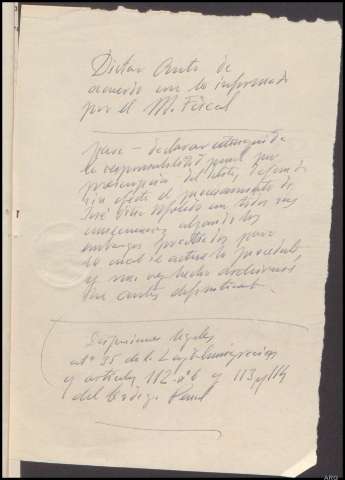 Dictar Auto de
acuerdo con lo informado
por el M. Fiscal
para - declarar extinguida
la responsabilidad penal por
prescripción del delito, dejando
sin efecto el procesamiento de
José
consecuencias, alzando los
embargos practicados para
lo cual se actuará lo procedente
y una vez hecho archívense
definitivamente.
Disposiciones legales
artº 35 de la Ley de Emigración
y artículos 112-nº 6 y 113 y 114
del Código Penal